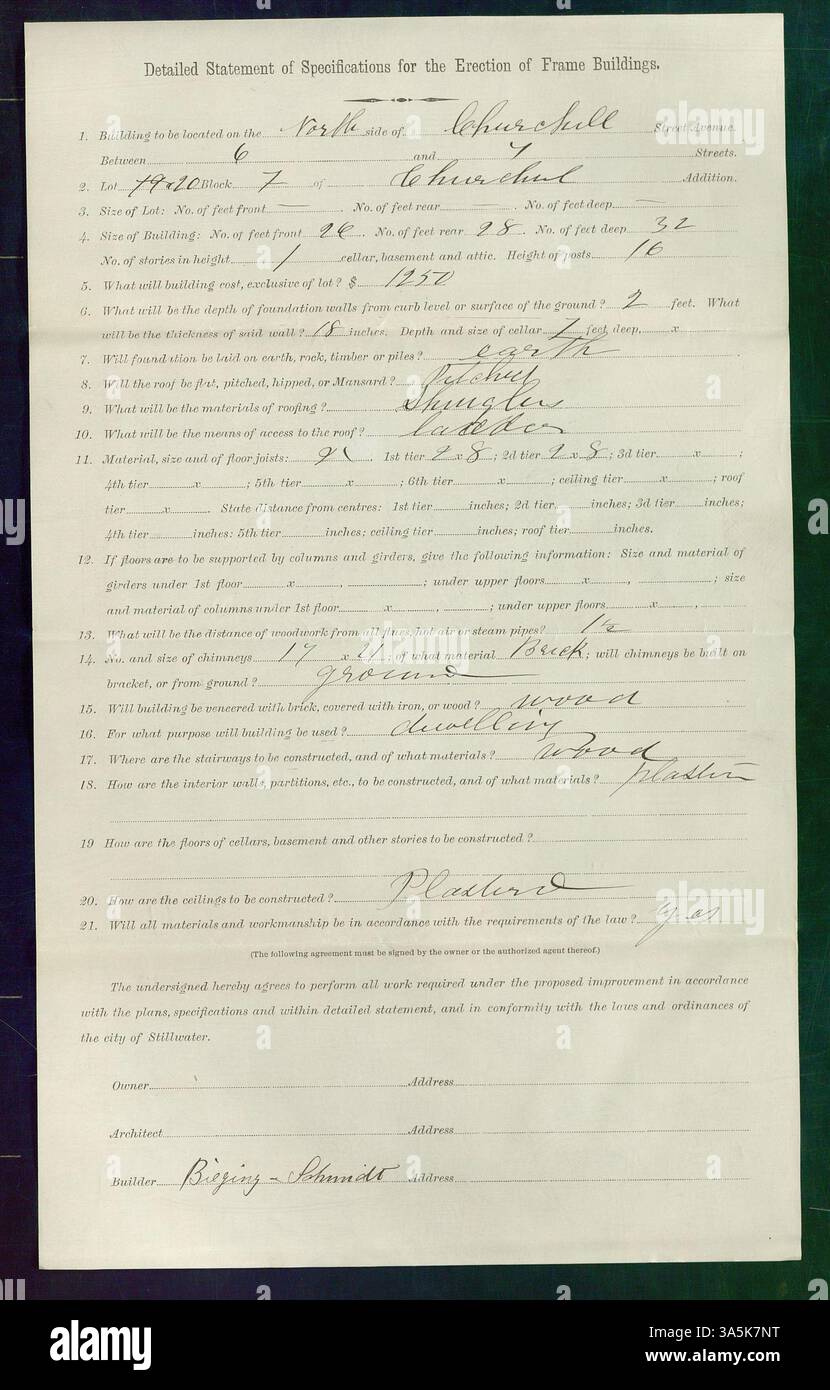 Detailed Statement of Specifications for the Erection of Frame Buildings.
1. Building to be located on the North side of Churchill Street Avenue.
Between 6 and 7 Streets.
2. Lot 19 x 20 Block 7 of Churchul Addition.
3. Size of Lot: No. of feet front — . No. of feet rear — . No. of feet deep —
4. Size of Building: No. of feet front 26 . No. of feet rear 28 . No. of feet deep 32
No. of stories in height 1 cellar, basement and attic. Height of posts 16
5. What will building cost, exclusive of lot? $ 1250
6. What will be the depth of foundation walls from curb level or surface of the ground? 2 feet. What
will be the thickness of said wall? 18 inches. Depth and size of cellar 7 feet deep, x
7. Will foundation be laid on earth, rock, timber or piles? earth
8. Will the roof be flat, pitched, hipped, or Mansard? Pitched
9. What will be the materials of roofing? Shingles
10. What will be the means of access to the roof? ladder
11. Material, size and of floor joists: . 1st tier 2 x 8 ; 2d tier 2 x 8 ; 3d tier x ;
4th tier x ; 5th tier x ; 6th tier x ; ceiling tier x ; roof
tier x . State distance from centres: 1st tier inches; 2d tier inches; 3d tier inches;
4th tier inches: 5th tier inches; ceiling tier inches; roof tier inches.
12. If floors are to be supported by columns and girders, give the following information: Size and material of
girders under 1st floor x , ; under upper floors x , ; size
and material of columns under 1st floor x , ; under upper floors x ,
13. What will be the distance of woodwork from all flues, hot air or steam pipes? 1½
14. No. and size of chimneys 17 x 21 ; of what material Brick ; will chimneys be built on
bracket, or from ground? ground
15. Will building be veneered with brick, covered with iron, or wood? wood
16. For what purpose will building be used? dwelling
17. Where are the stairways to be constructed, and of what materials? wood
18. How are the interior walls, partitions, etc., to be constructed, and of what materials?
19 How are the floors of cellars, basement and other stories to be constructed?
20. How are the ceilings to be constructed? Plasterd
21. Will all materials and workmanship be in accordance with the requirements of the law? yes
(The following agreement must be signed by the owner or the authorized agent thereof.)
The undersigned hereby agrees to perform all work required under the proposed improvement in accordance
with the plans, specifications and within detailed statement, and in conformity with the laws and ordinances of
the city of Stillwater.
Owner Address
Architect Address
Builder Bieging - Schmidt Address
alamy
Image ID: 3A5K7NT
www.alamy.com